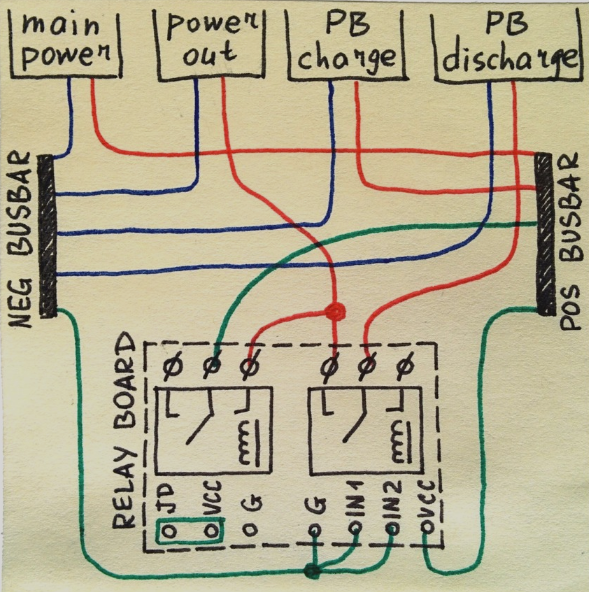 main
power
power
out
PB
charge
PB
discharge
NEG BUSBAR
POS BUSBAR
RELAY BOARD
JD
VCC
G
G
IN1
IN2
VCC